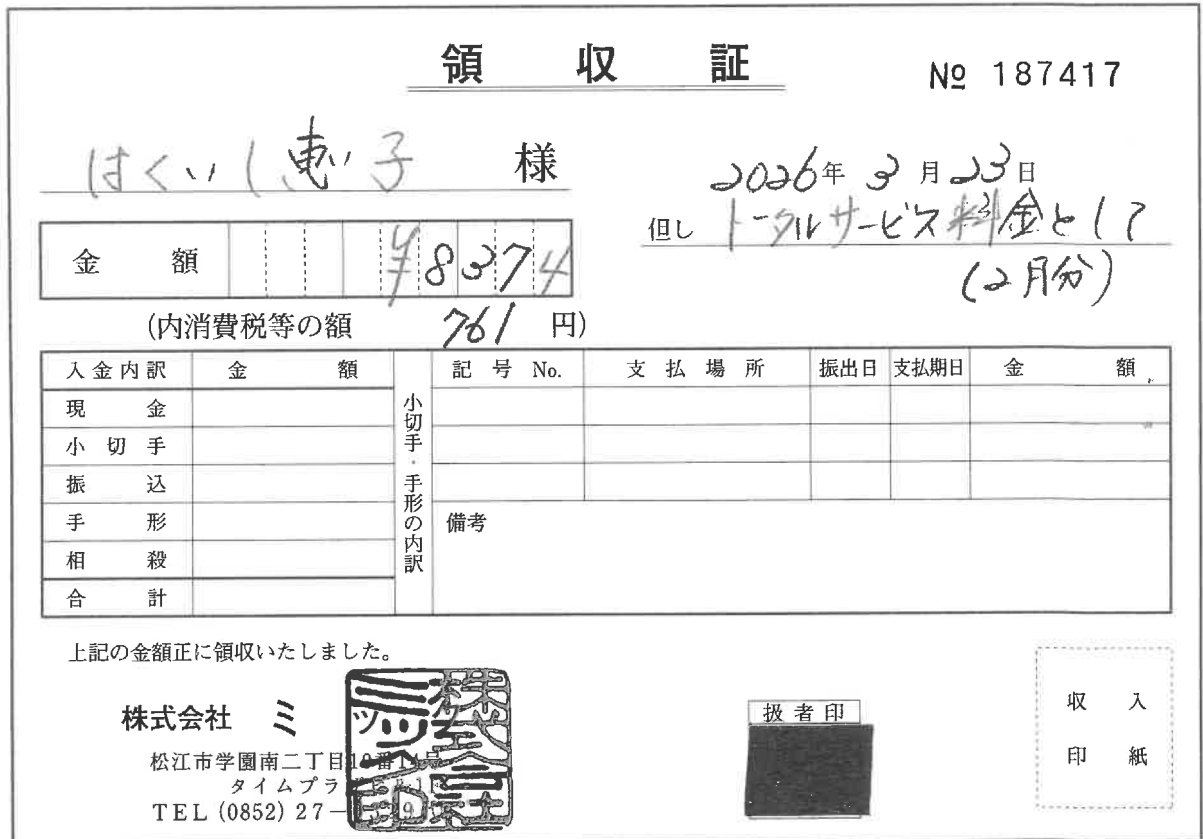 領収証
№ 187417
はくいし恵子 様
2026年3月23日
但し トータルサービス料金として
(2月分)
金額 ¥8374
(内消費税等の額 761 円)
入金内訳 金額
現金
小切手
振込
手形
相殺
合計
小切手・手形の内訳
記号No. 支払場所 振出日 支払期日 金額
備考
上記の金額正に領収いたしました。
株式会社 ミック
松江市学園南二丁目
タイムプラ
TEL (0852) 27-
扱者印
収入
印紙